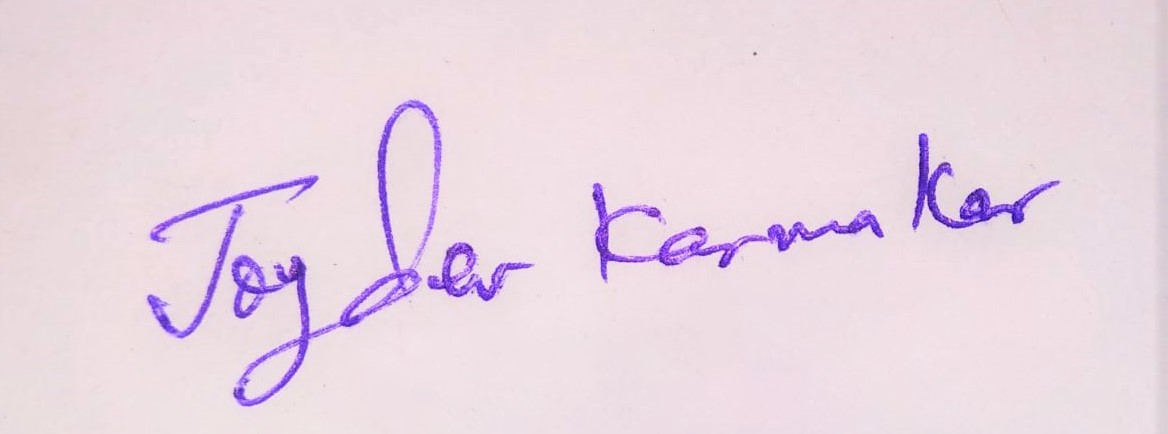 Joydev Karmaker